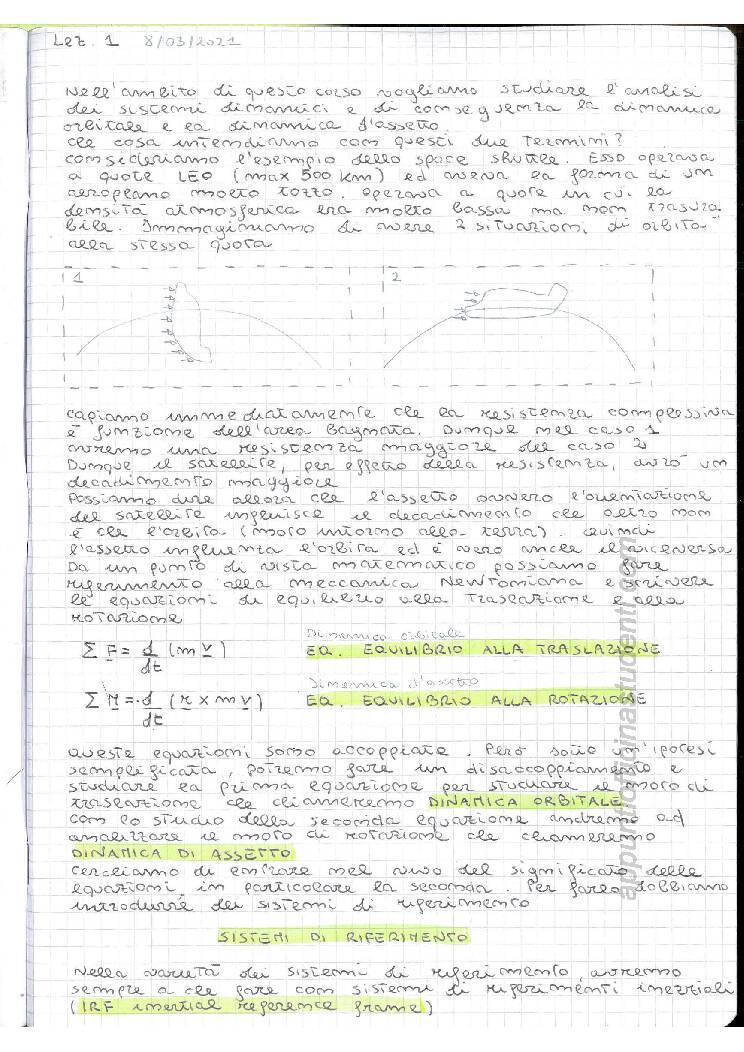 Lez. 1 8/03/2021
Nell'ambito di questo corso vogliamo studiare l'analisi
dei sistemi dinamici e di conseguenza la dinamica
orbitale e la dinamica d'assetto.
Che cosa intendiamo con questi due termini?
consideriamo l'esempio dello space shuttle. Esso operava
a quote LEO (max 500 km) ed aveva la forma di un
aeroplano molto tozzo. operava a quote in cui la
densità atmosferica era molto bassa ma non trascura
bile. Immaginiamo di avere 2 situazioni di orbita
alla stessa quota
1 2
capiamo immediatamente che la resistenza complessiva
è funzione dell'area bagnata. Dunque nel caso 1
avremo una resistenza maggiore del caso 2
Dunque il satellite, per effetto della resistenza, avrà un
decadimento maggiore
Possiamo dire allora che l'assetto ovvero l'orientazione
del satellite influisce il decadimento che altro non
è che l'orbita (moto intorno alla terra). Quindi
l'assetto influenza l'orbita ed è vero anche il viceversa
Da un punto di vista matematico possiamo fare
riferimento alla meccanica Newtoniana e scrivere
le equazioni di equilibrio alla traslazione e alla
rotazione
Dinamica orbitale
Σ F = d/dt (m v) EQ. EQUILIBRIO ALLA TRASLAZIONE
Dinamica d'assetto
Σ M = d/dt (r x m v) EQ. EQUILIBRIO ALLA ROTAZIONE
Queste equazioni sono accoppiate. Però sotto un'ipotesi
semplificata, potremo fare un disaccoppiamento e
studiare la prima equazione per studiare il moto di
traslazione che chiameremo DINAMICA ORBITALE
con lo studio della seconda equazione andremo ad
analizzare il moto di rotazione che chiameremo
DINAMICA DI ASSETTO
Cerchiamo di entrare nel vivo del significato delle
equazioni, in particolare la seconda. Per farlo dobbiamo
introdurre dei sistemi di riferimento
SISTEMI DI RIFERIMENTO
Nella varietà dei sistemi di riferimento, avremo
sempre a che fare con sistemi di riferimenti inerziali
(IRF inertial reference frame)
appuntiofficinastudenti.com